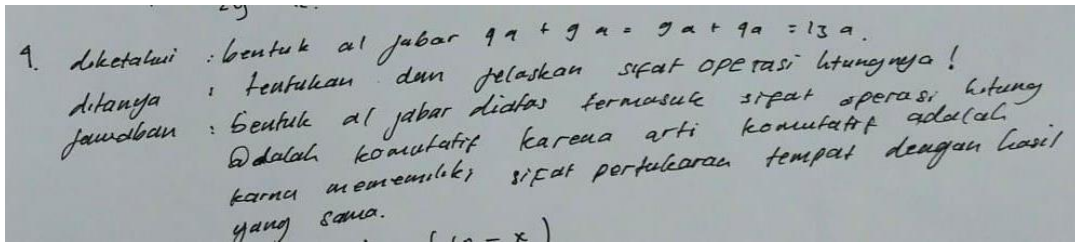 4. diketahui : bentuk al jabar 4a + 9a = 9a + 4a = 13a.
ditanya : tentukan dan jelaskan sifat operasi htungnya!
Jawaban : bentuk al jabar diatas termasuk sifat operasi hitung
adalah komutatif karena arti komutatif adalah
karna mememiliki sifat pertukaran tempat dengan hasil
yang sama.